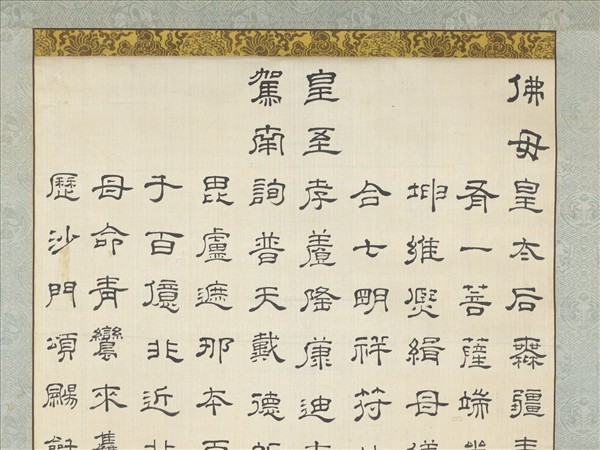 佛母皇太后無疆
一菩薩端坐
坤維緝母儀
合七明祥符
皇至孝養隆廉迪
駕南詢普天戴德
毘盧遮那本
千百億非近非
母命青鸞來
歷沙門頌颺